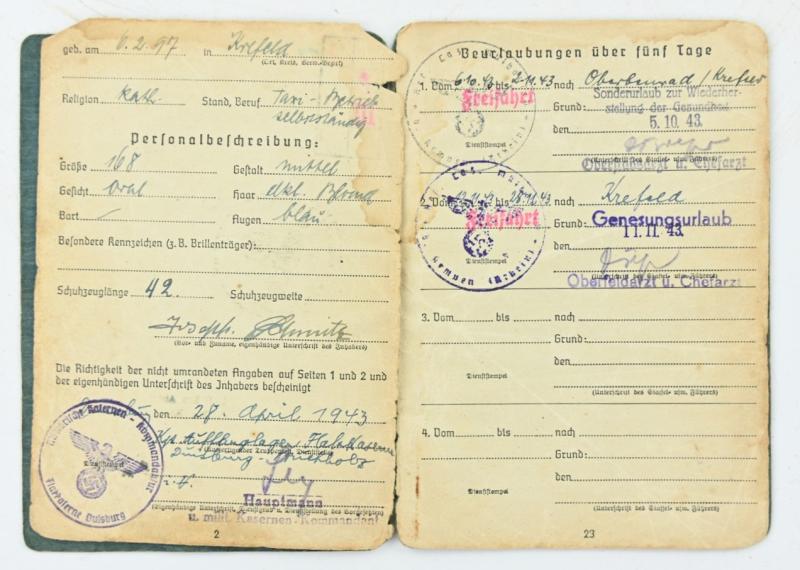 geb. am 6.2.97 in Krefeld
(Ort, Kreis, Verw.-Bezirk)
Religion kath. Stand, Beruf Taxi-Betrieb
selbständig
Personalbeschreibung:
Größe 168 Gestalt mittel
Gesicht Oval Haar dkl. Blond
Bart / Augen blau
Besondere Kennzeichen (z.B. Brillenträger):
Schuhzeuglänge 42. Schuhzeugweite
Joseph Schmitz
(Vor- und Zuname, eigenhändige Unterschrift des Inhabers)
Die Richtigkeit der nicht umrandeten Angaben auf Seiten 1 und 2 und
der eigenhändigen Unterschrift des Inhabers bescheinigt
den 28. April 1943
Duisburg
Dienststempel
Flakkaserne Duisburg
Hauptmann
u. milit. Kasernen-Kommandant
2
Beurlaubungen über fünf Tage
1. Vom 6.10.43 bis 2.11.43 nach / Krefeld
Freifahrt
Sonderurlaub zur Wiederher-
stellung der Gesundheit
Grund:
den 5.10.43
Dienststempel
(Unterschrift des Staffel- usw. Führers)
Oberfeldarzt u. Chefarzt
2. Vom bis nach Krefeld
Freifahrt
Grund: Genesungsurlaub
den 11.11.43
Dienststempel
Kempen (Rhein)
(Unterschrift des Staffel- usw. Führers)
Oberfeldarzt u. Chefarzt
3. Vom bis nach
Grund:
den
Dienststempel
(Unterschrift des Staffel- usw. Führers)
4. Vom bis nach
Grund:
den
Dienststempel
(Unterschrift des Staffel- usw. Führers)
23